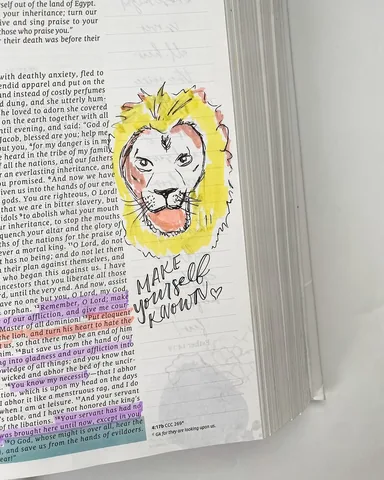 rself out of the land of Egypt.
your inheritance; turn our
ive and sing praise to your
hose who praise you."
their death was before their
with deathly anxiety, fled to
endid apparel and put on the
and instead of costly perfumes
d dung, and she utterly hum-
he loved to adorn she covered
on the earth together with all
until evening, and said: "God of
Jacob, blessed are you; help me,
but you, for my danger is in my
e heard in the tribe of my family
all the nations, and our fathers
an everlasting inheritance, and
ou promised. And now we have
iven us into the hands of our ene-
gods. You are righteous, O Lord!
that we are in bitter slavery, but
idols to abolish what your mouth
our inheritance, to stop the mouths
quench your altar and the glory of
ths of the nations for the praise of
ver a mortal king. O Lord, do not
has no being; and do not let them
their plan against themselves, and
who began this against us. I have
ancestors that you liberate all those
rd, until the very end. And now, assist
ave no one but you, O Lord, my God.
orphan. Remember, O Lord; make
of our affliction, and give me cour-
Master of all dominion! Put eloquent
the lion, and turn his heart to hate the
t us, so that there may be an end of him
him. But save us from the hand of our
ing into gladness and our affliction into
owledge of all things; and you know that
wicked and abhor the bed of the uncir-
You know my necessity—that I abhor
tion, which is upon my head on the days
I abhor it like a menstruous rag, and I do
when I am at leisure. And your servant
's table, and I have not honored the king's
libations. Your servant has had no
was brought here until now, except in you,
O God, whose might is over all, hear the
and save us from the hands of evildoers.
ear!"
MAKE
yourself
KNOWN
4:17b CCC 269
GA for they are looking upon us.